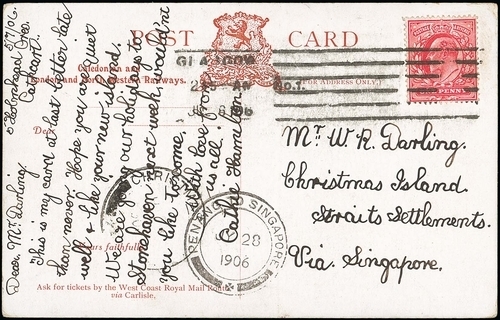 POST CARD
Caledonian and
London and North Western Railways.
(FOR ADDRESS ONLY.)
GLASGOW
No. 1.
PENNY
Holmhead Cres.
Cathcart.
5/7/06.
Dear Mr Darling.
This is my card at last. Better late
than never. Hope you are
well & like your new island.
We are going our holidays to
Stonehaven next week, wouldn't
you like to come.
With love from
us all.
Cathie Hamilton
Dear
Yours faithfully
Mr. W. R. Darling.
Christmas Island.
Straits Settlements.
Via. Singapore.
PENANG TO SINGAPORE
28
1906
Ask for tickets by the West Coast Royal Mail Route
via Carlisle.